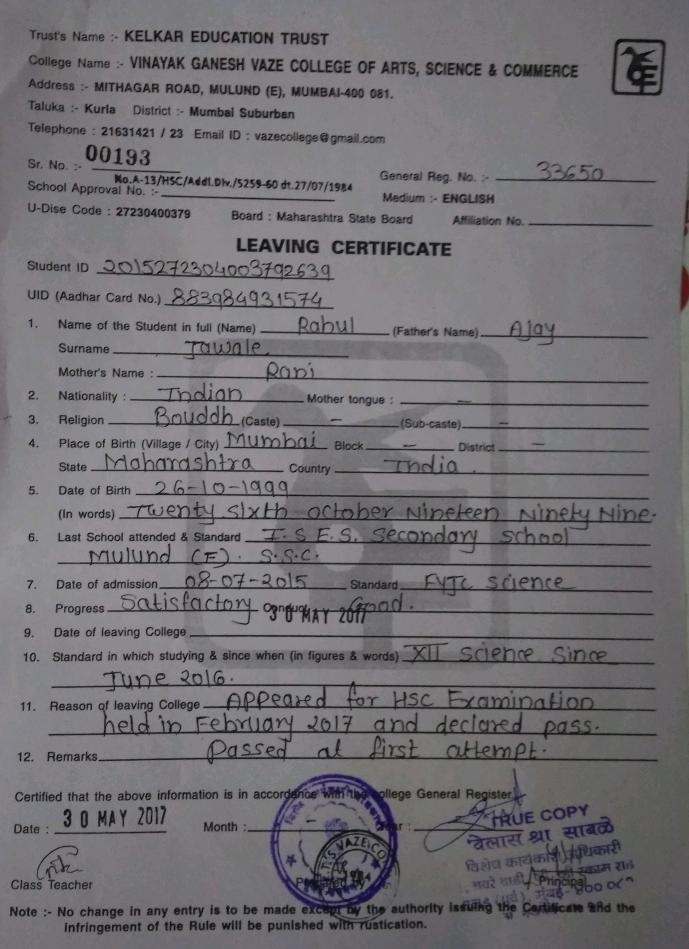 Trust's Name :- KELKAR EDUCATION TRUST
College Name :- VINAYAK GANESH VAZE COLLEGE OF ARTS, SCIENCE & COMMERCE
Address :- MITHAGAR ROAD, MULUND (E), MUMBAI-400 081.
Taluka :- Kurla District :- Mumbai Suburban
Telephone : 21631421 / 23 Email ID : vazecollege@gmail.com
Sr. No. :- 00193 General Reg. No. :- 33650
School Approval No. :- No.A-13/HSC/Addl.Div./5259-60 dt.27/07/1984 Medium :- ENGLISH
U-Dise Code : 27230400379 Board : Maharashtra State Board Affiliation No.
LEAVING CERTIFICATE
Student ID 2015272304003792639
UID (Aadhar Card No.) 883984931574
1. Name of the Student in full (Name) Rahul (Father's Name) Ajay
Surname Jawale.
Mother's Name : Rani
2. Nationality : Indian Mother tongue : —
3. Religion Bouddh (Caste) — (Sub-caste) —
4. Place of Birth (Village / City) Mumbai Block — District —
State Maharashtra Country India.
5. Date of Birth 26-10-1999
(In words) Twenty sixth october Nineteen Ninety Nine.
6. Last School attended & Standard I.S.E.S. Secondary School
Mulund (E). S.S.C.
7. Date of admission 08-07-2015 Standard FYJC Science
8. Progress Satisfactory Conduct Good.
30 MAY 2017
9. Date of leaving College
10. Standard in which studying & since when (in figures & words) XII Science Since
June 2016.
11. Reason of leaving College Appeared for HSC Examination
held in February 2017 and declared pass.
12. Remarks Passed at first attempt.
Certified that the above information is in accordance with the college General Register.
Date : 30 MAY 2017 Month : —
TRUE COPY
Class Teacher Principal
Note :- No change in any entry is to be made except by the authority issuing the Certificate and the
infringement of the Rule will be punished with rustication.